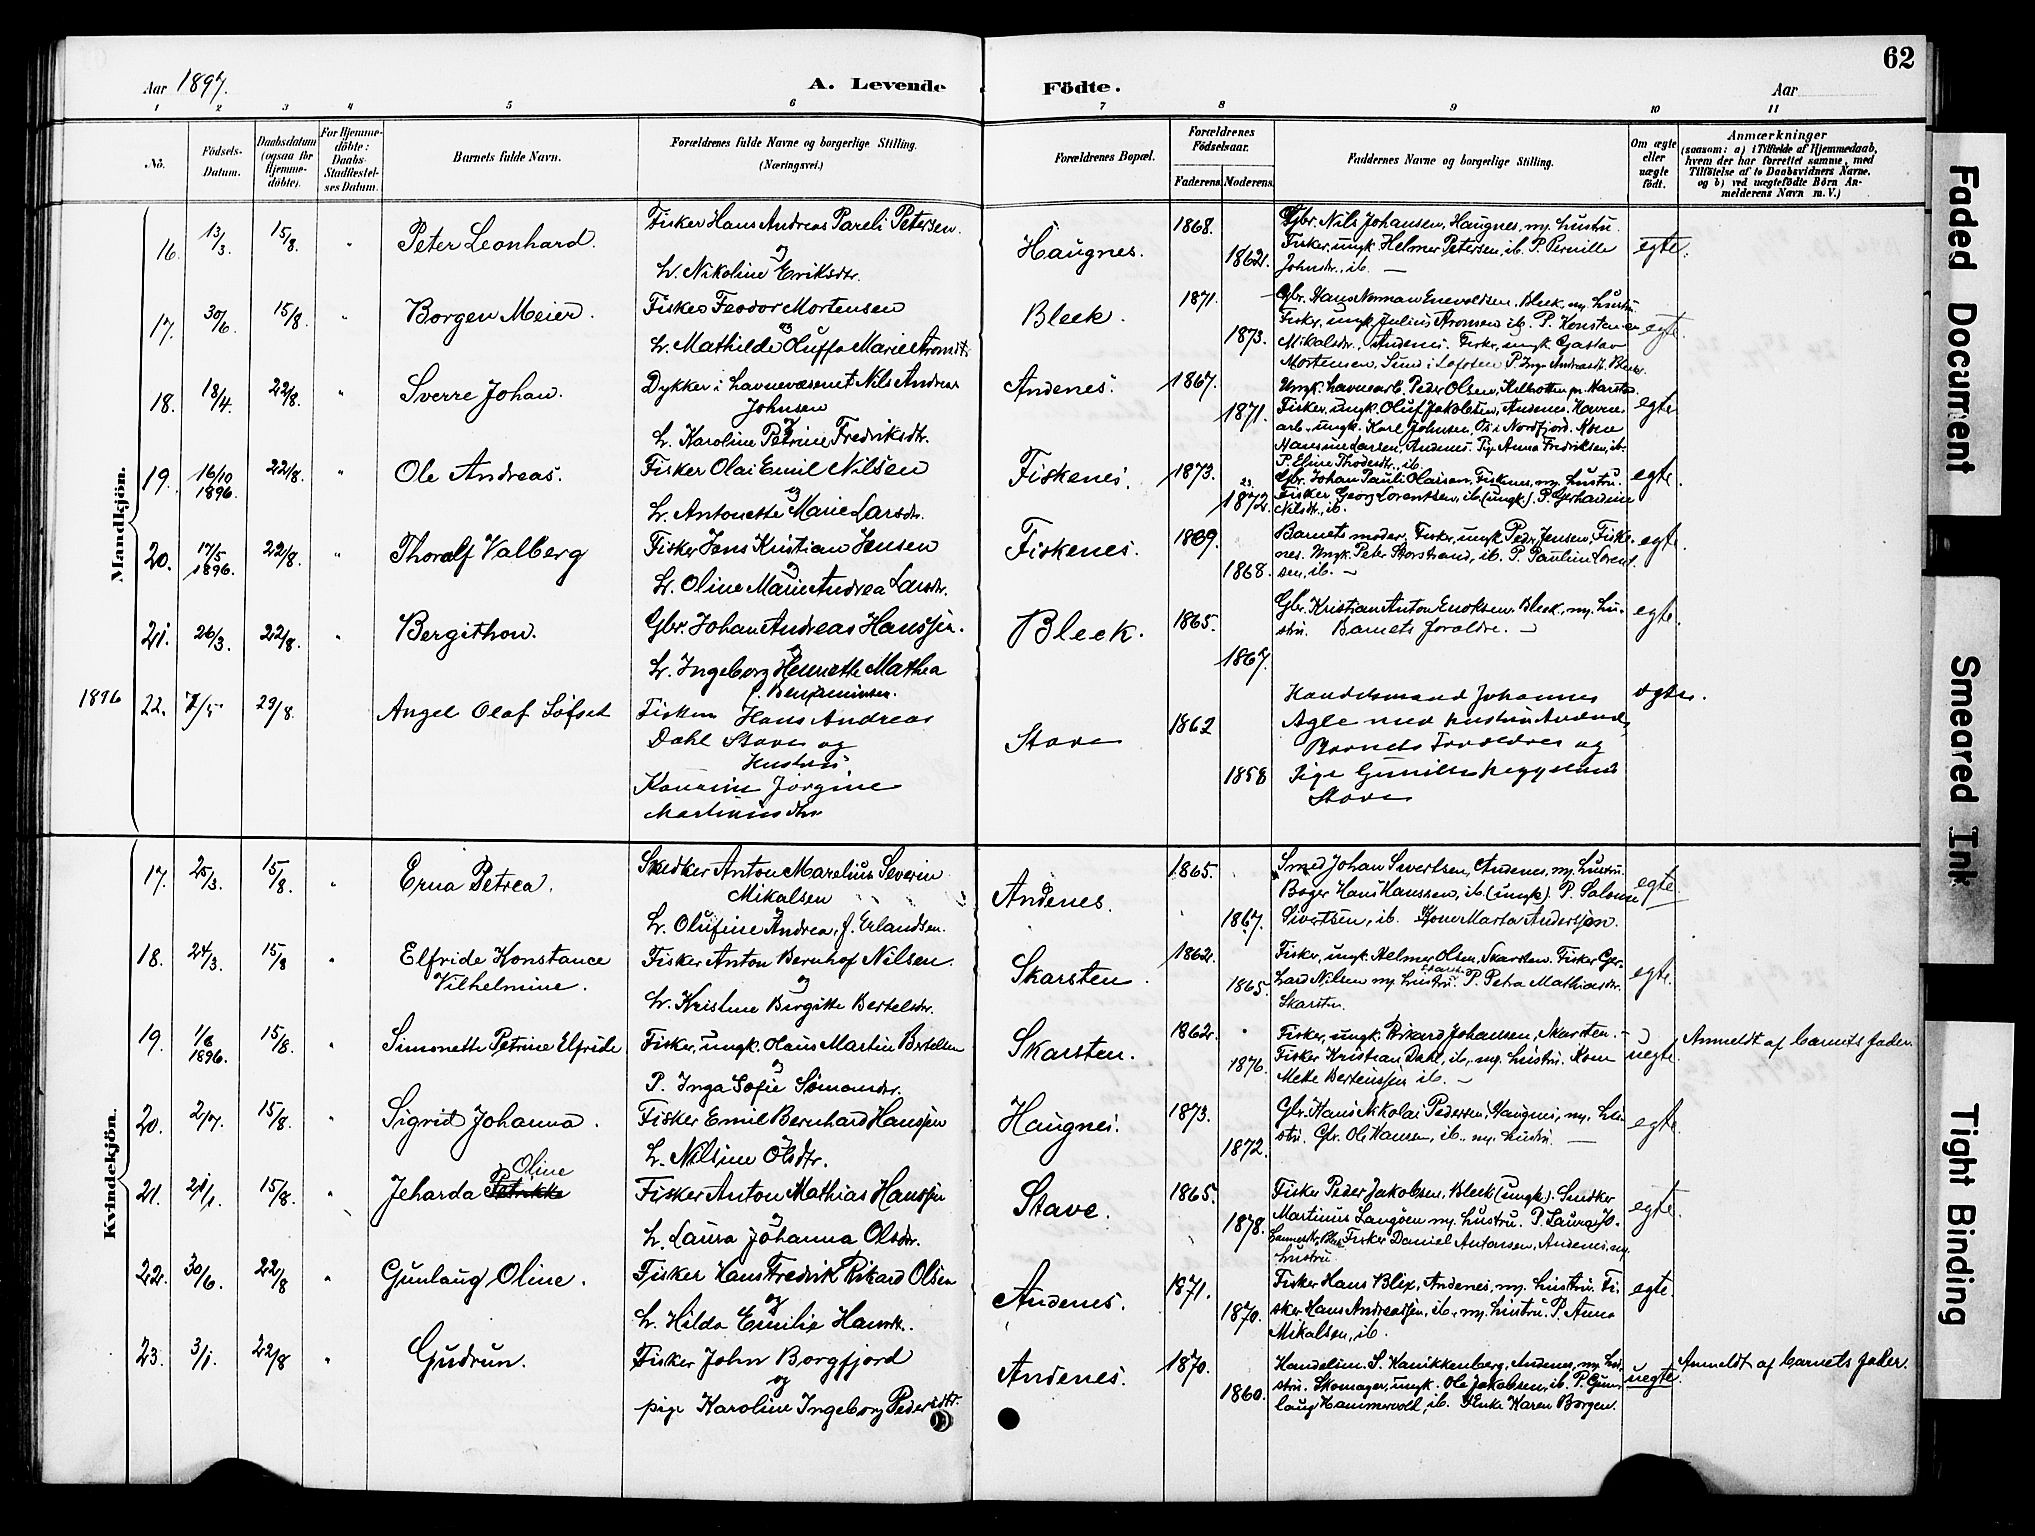 62
Aar 1897.
A. Levende Födte.
Aar
1 2 3 4 5 6 7 8 9 10 11
No.
Födsels-Datum.
Daabsdatum (ogsaa for Hjemme-döbte).
For Hjemme-döbte: Daabs-Stadfæstelses Datum.
Barnets fulde Navn.
Forældrenes fulde Navne og borgerlige Stilling.
(Næringsvei.)
Forældrenes Bopæl.
Forældrenes Födselsaar.
Faderens. Moderens.
Faddernes Navne og borgerlige Stilling.
Om ægte eller uægte födt.
Anmærkninger
(saasom: a) i Tilfælde af Hjemmedaab,
hvem der har forrettet samme, med
Tilföielse af to Daabsvidners Navne.
og b) ved uægtefödte Börn An-
melderens Navn m. V.)
Mandkjön.
16. 13/3. 15/8. " Peter Leonhard. Fisker Hans Andreas Pareli Petersen. Haugnes. 1868. Gbr. Nils Johansen, Haugnes, m. hustru. egte.
og Fisker, ungk. Helmer Petersen, ib. P. Pernille
H. Nikoline Eriksdtr. 1862. Johnsdr., ib. —
17. 30/6. 15/8. " Borgen Meier. Fisker Feodor Mortensen Bleek. 1871. Gbr. Hans Norman Enevoldsen, Bleek, m. hustru. egte.
og Fisker, ungk. Julius Aronsen ib. P. Konstance
H. Mathilde Oluffa Marie Aronsdtr. 1873. Mikalsdr., Andenes. Fisker, ungk. Gustav
Mortensen, Sund i Lofoten P. Inga Andreasdtr. Bleek.
18. 18/4. 22/8. " Sverre Johan. Dykker i havnevæsenet Nils Andreas Andenes. 1867. Ungk. havnearb. Peder Olsen,
Johnsen 1871. Fisker, ungk. Oluf Jakobsen, Andenes. Havne- egte
og arb. ungk. Karl Johnsen, Os i Nordfjord. Kone
H. Karoline Petrine Fredriksdtr. Hansine Larsen, Andenes. Pige Anna Fredriksen, ib.
P. Eline Thodesdtr., ib.
19. 16/10 1896. 22/8. " Ole Andreas. Fisker Olai Emil Nilsen Fiskenes. 1873. Gbr. Johan Pauli Olaisen, Fiskenes, m. hustru. egte.
og 1872. Fisker Georg Lorentsen, ib. (ungk.). P. Gerhardine
H. Antonette Marie Larsdtr. Nilsdtr., ib.
20. 17/5 1896. 22/8. " Thoralf Valberg Fisker Jens Kristian Jensen Fiskenes. 1869. Barnets moder, Fisker, ungk. Peder Jensen, Fiske- egte.
og nes. Ungk. Peter Storstrand, ib. P. Pauline Lorent-
H. Oline Marie Andrea Larsdtr. 1868. sen, ib. —
21. 26/3. 22/8. " Bergithon. Gbr. Johan Andreas Hanssen. Bleek. 1865. Gbr. Kristian Anton Enoksen, Bleek, m. hu- egte.
og stru. Barnets forældre. —
H. Ingeborg Henriette Mathea 1867.
f. Benjaminsen.
1896 22. 7/5 29/8. Angel Olaf Löfset Fisker Hans Andreas Stave 1862 Handelsmand Johannes ægte.
Dahl Stave og Agle med hustru
Hustru Barnets Forældre og
Jørgine 1858 Pige
Martiniusdtr Stave
Kvindekjön.
17. 25/3. 15/8. " Erna Petrea. Snedker Anton Marelius Severin Andenes. 1865. Smed Johan Sivertsen, Andenes, m. hustru. egte.
Mikalsen Bager Hans Hanssen, ib. (ungk.). P. Salomine
og
H. Olufine Andrea, f. Erlandsen. 1867. Sivertsen, ib. Kone Marta Anderssen.
18. 24/3. 15/8 " Elfride Konstance Vilhelmine. Fisker Anton Bernhof Nilsen. Skarsten. 1862. Fisker, ungk. Helmer Olsen, Skarsten. Fisker Ger- egte.
og 1865. hard Nilsen m. hustru. P. Petra Mathiasdr.
H. Kristine Birgitte Bertelsdr. Skarsten.
19. 1/6 1896. 15/8. " Simonette Petrine Elfride Fisker, ungk. Olaus Martin Bertelsen Skarsten. 1862. Fisker, ungk. Rikard Johansen, Skarsten. — uegte. Anmeldt af barnets fader.
og 1876. Fisker Kristian Dahl, ib., m. hustru. Kone
P. Inga Sofie Simonsdr. Mette Bertenssen ib. —
20. 2/7. 15/8. " Sigrid Johanna. Fisker Emil Bernhard Hanssen Haugnes. 1873. Gbr. Hans Nikolai Pedersen, Haugnes, m. hu- egte.
og stru. Gbr. Ole Hansen, ib., m. hustru. —
H. Nilsine Olsdtr. 1872.
21. 21/1. 15/8. " Jeharda Petrikke Oline Fisker Anton Mathias Hanssen Stave. 1865. Fisker Peder Jakobsen, Bleek (ungk.). Snedker egte.
og Martinus Langøen m. hustru. P. Laura Jo-
H. Laura Johanna Olsdr. 1878. Fisker Daniel Antonsen, Andenes, m.
hustru
22. 30/6. 22/8 " Gunlaug Oline. Fisker Hans Fredrik Rikard Olsen Andenes. 1871. Fisker Hans Blix, Andenes, m. hustru. Fi- egte.
og sker Hans Andreassen, ib., m. hustru. P. Anna
H. Hilda Emilie Hansdr. 1870. Mikalsen, ib.
23. 3/1. 22/8 " Gudrun. Fisker John Borgfjord Andenes. 1870. Handelsm. S. Kanikkenberg, Andenes, m. hu- uegte. Anmeldt af barnets fader.
og stru. Skomager, ungk. Ole Jakobsen, ib. P. Gun-
pige Karoline Ingeborg Pedersdtr. 1860. laug Hammervold, ib. Enke Karen Borgen.
Faded Document
Smeared Ink
Tight Binding